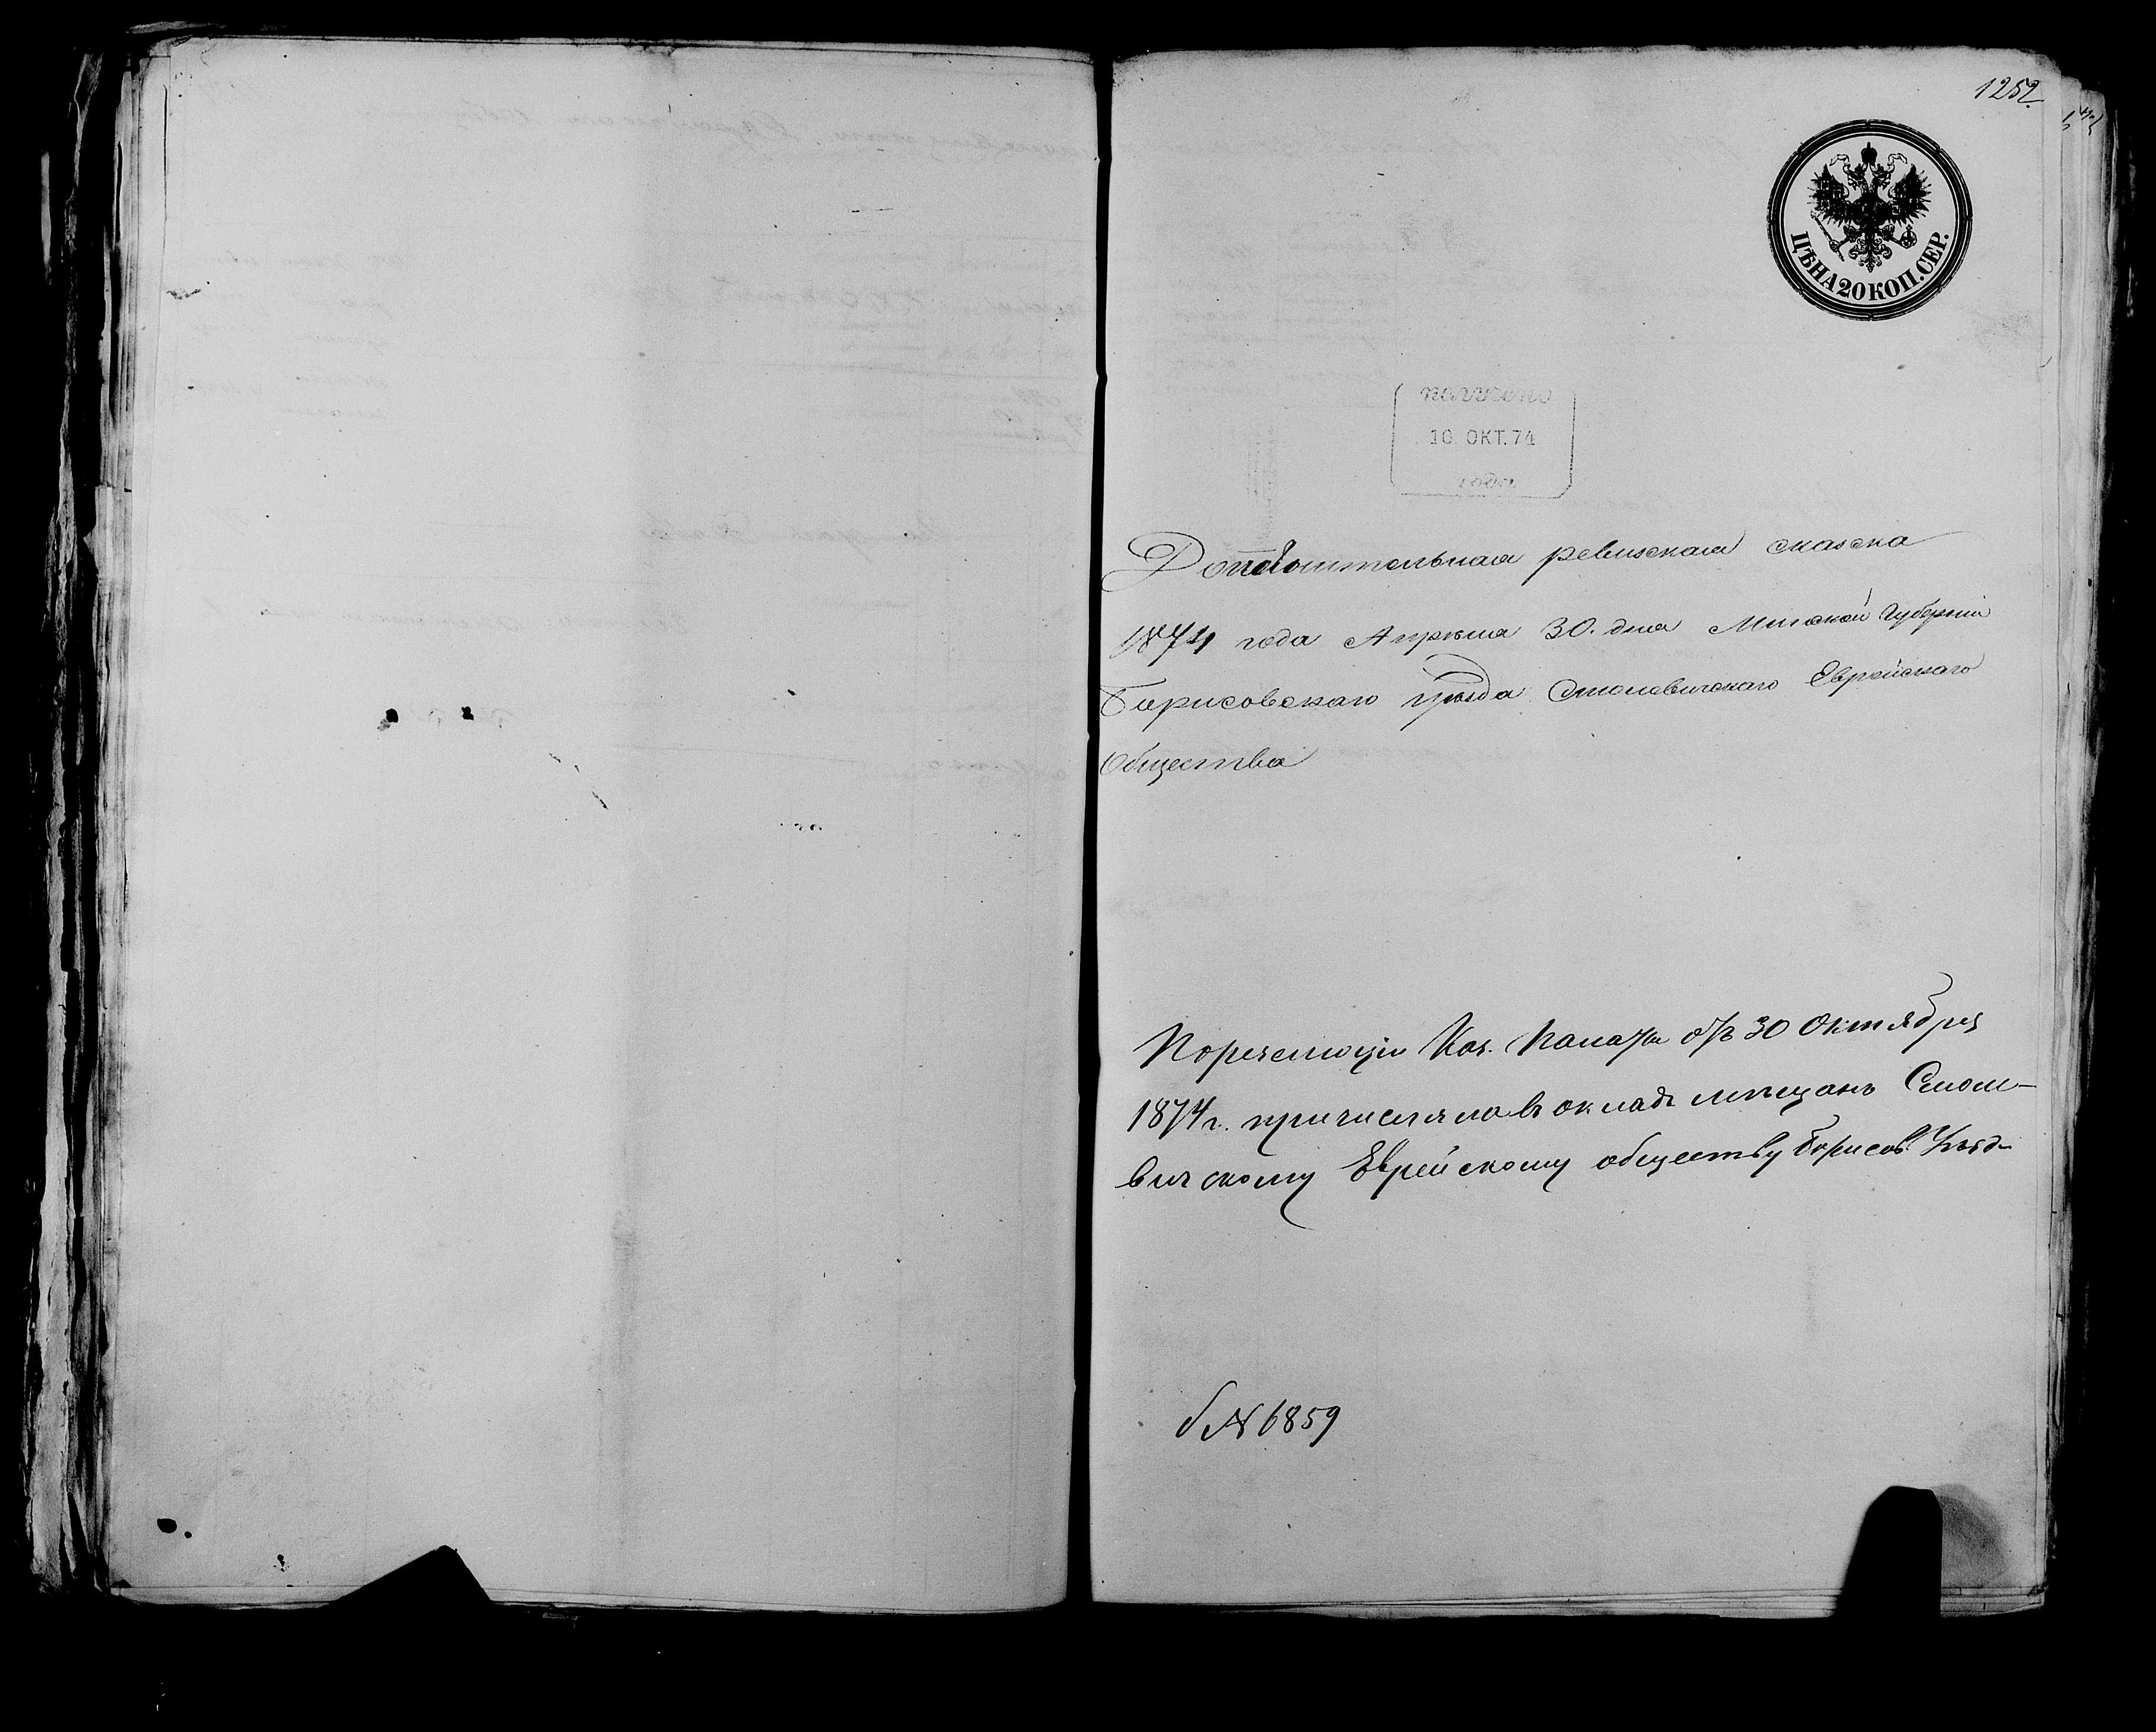 1252
ЦѢНА 20 КОП. СЕР.
получено
10. ОКТ. 74
года
Дополнительная ревизская сказка
1874 года Апрѣля 30. дня Минской Губерніи
Борисовскаго уѣзда Смолевичскаго Еврейскаго
Общества
По резолюціи Каз. Палаты отъ 30 Октября
1874 г. причислена въ окладъ мѣщанъ Смоле-
вичскому Еврейскому обществу Борисов. Уѣзд.
№ 6859